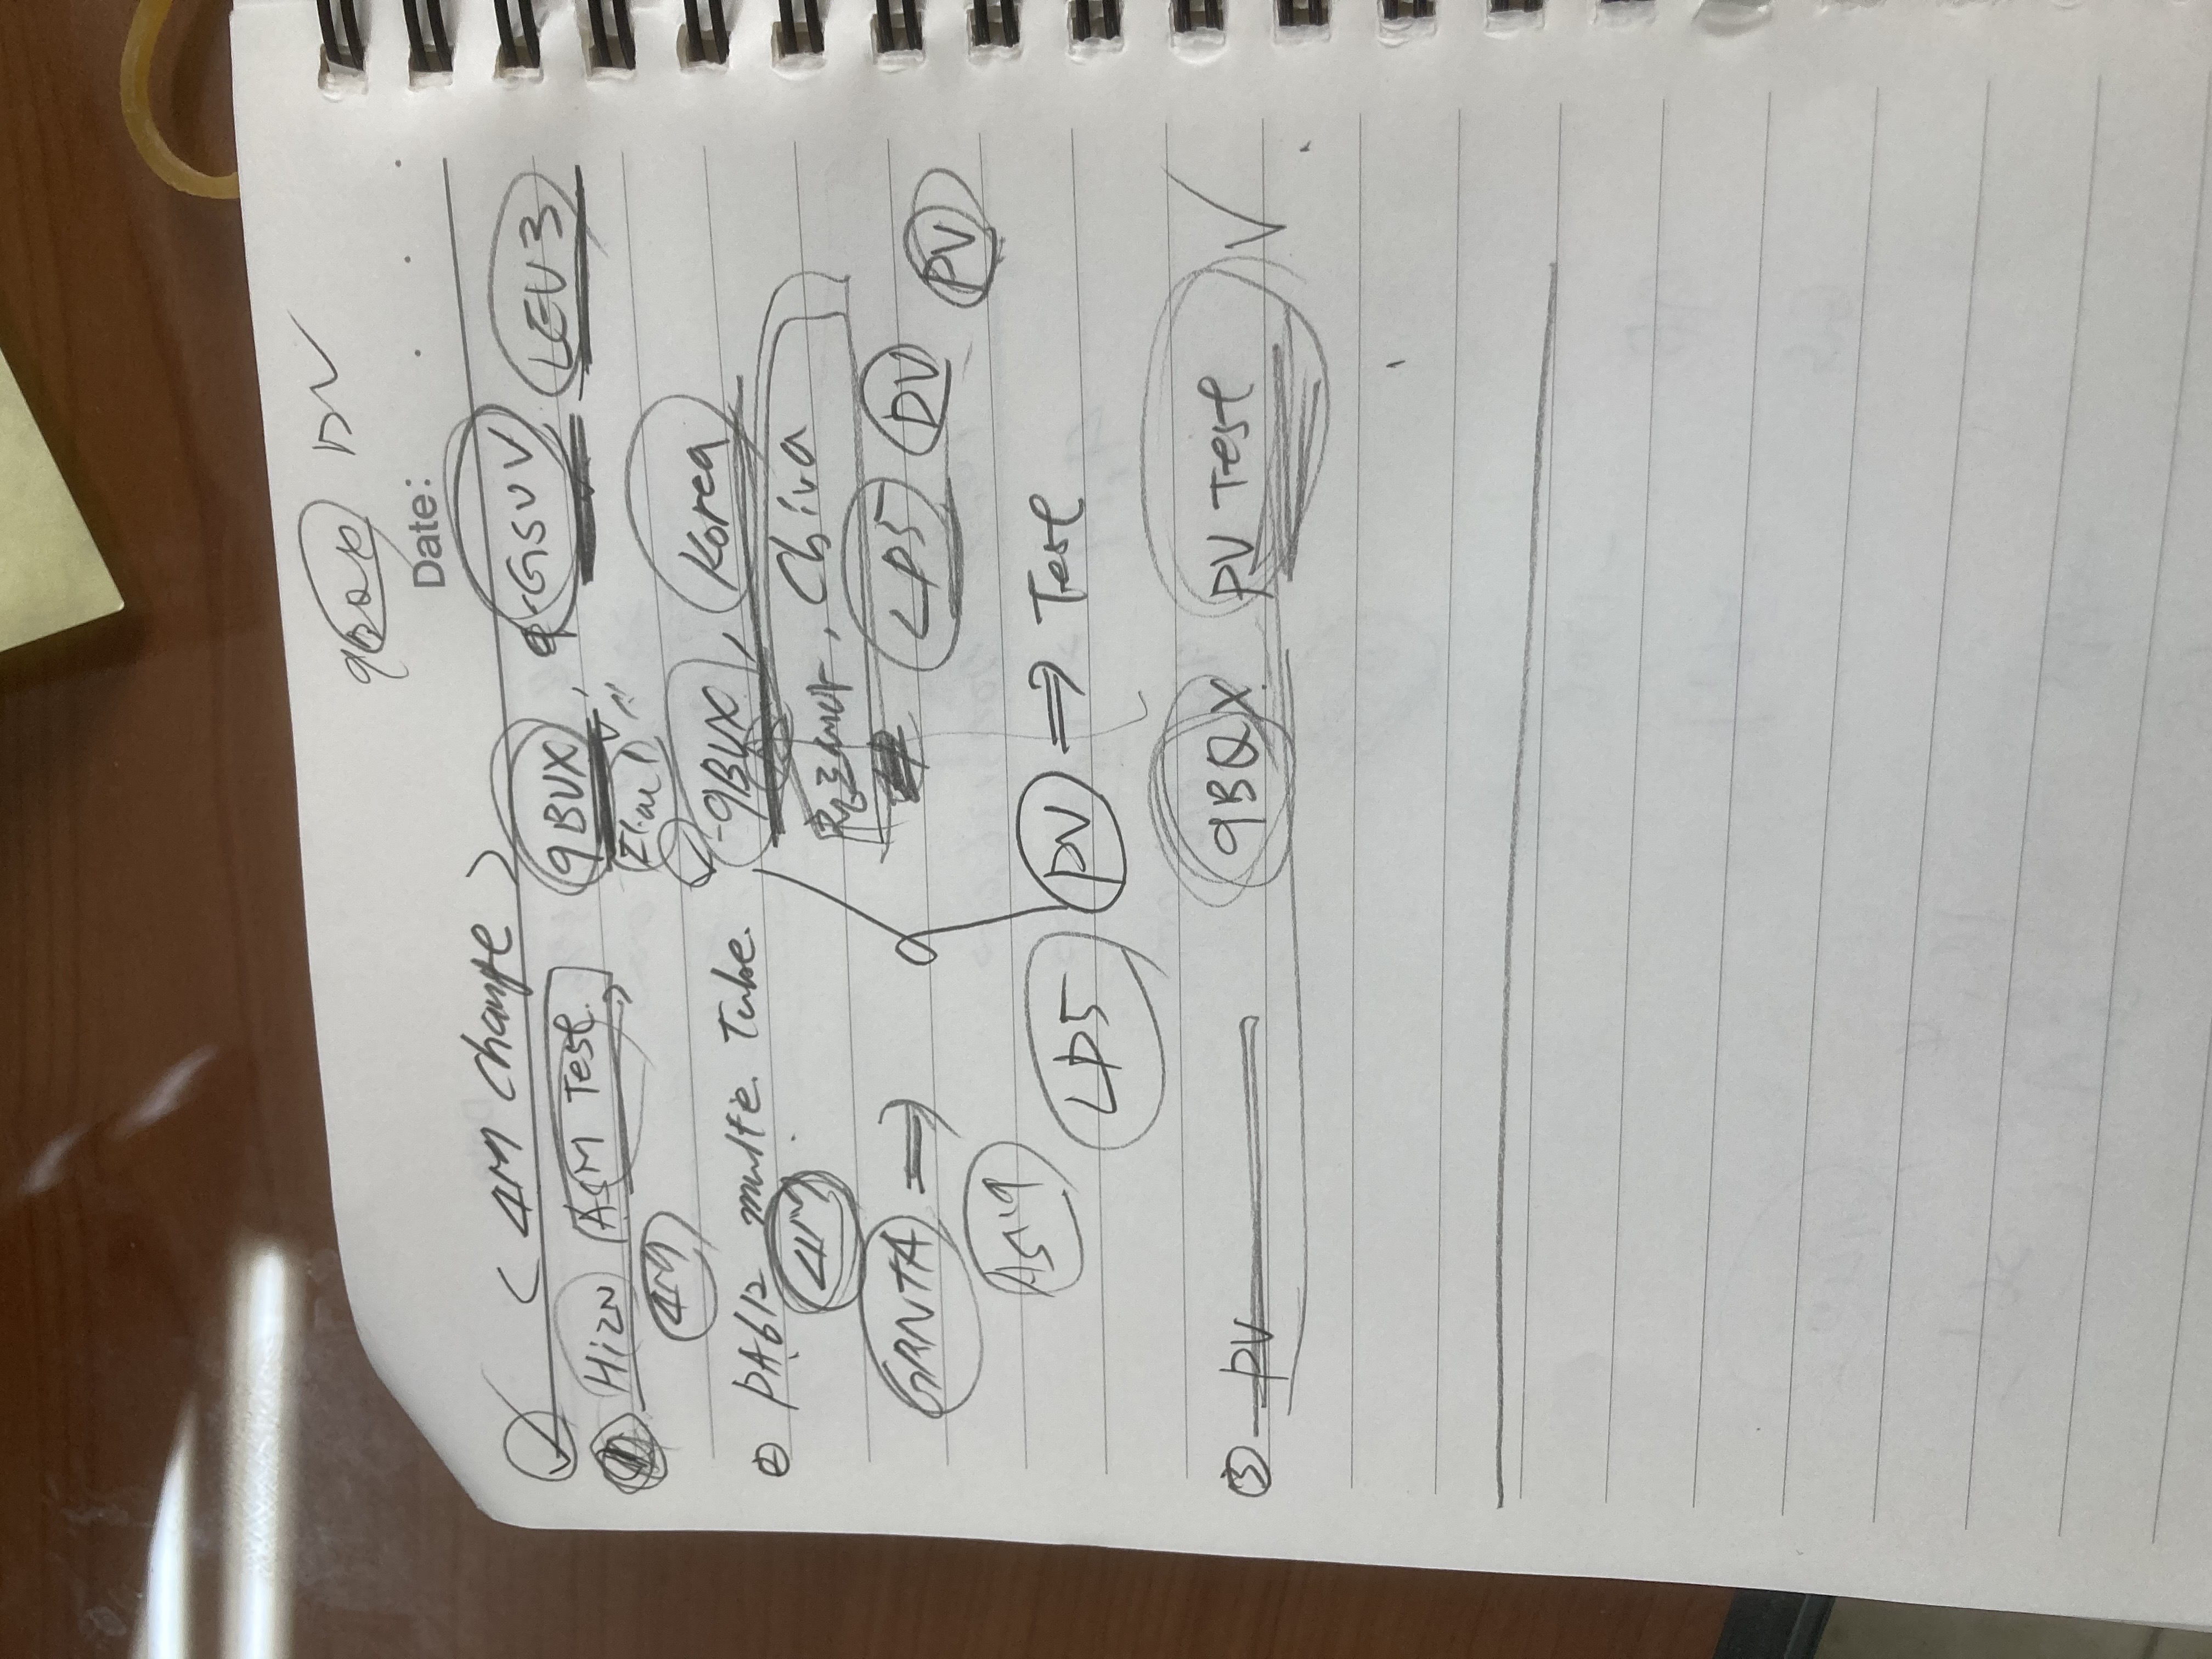 DV
Date:
( 4M change )
① Hizn ASM Test. 9BUX, GSUV LEV3
4M
② PA612 multi Tube. 9BUX, Korea
4M
China
GRNTA ⇒ LP5 DV PV
LP5 PV ⇒ Test
③ PV 9BQX PV Test